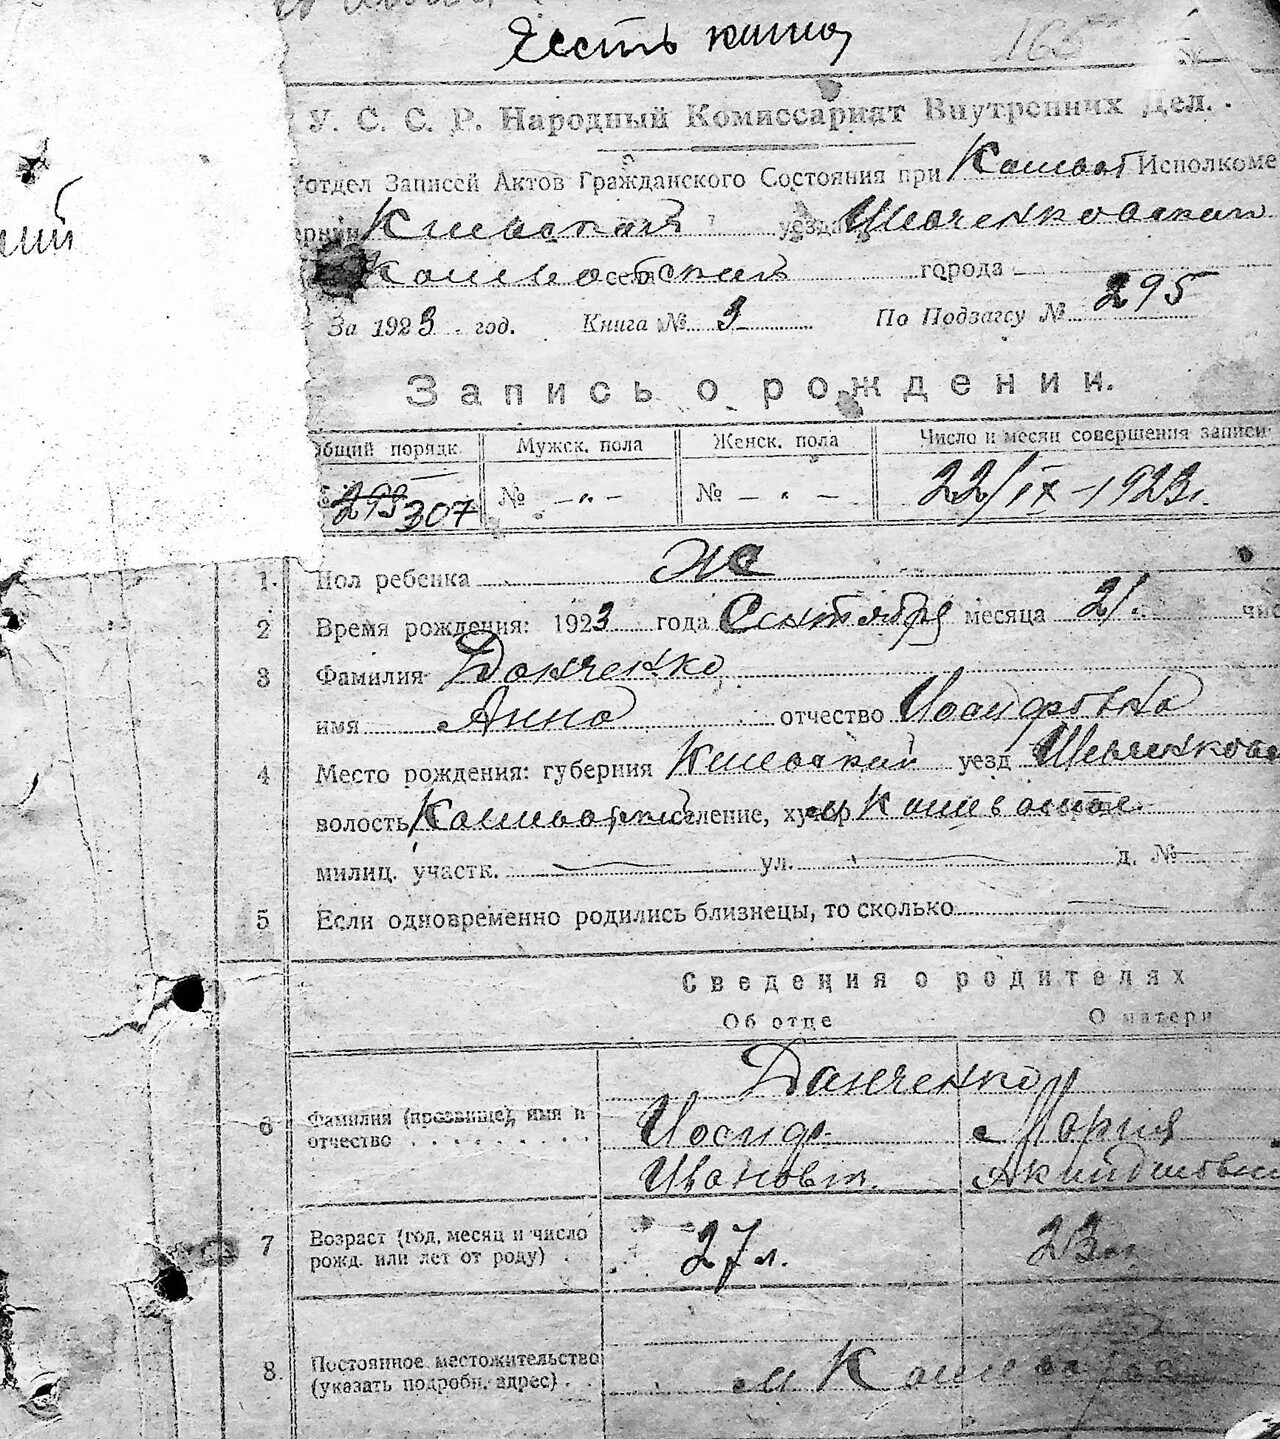 Есть копия
165
У. С. С. Р. Народный Комиссариат Внутренних Дел.
отдел Записей Актов Гражданского Состояния при Исполкоме
Киевской уезда Шевченковского
села города —
За 1923 год. Книга № 3 По Подзагсу № 295
Запись о рождении.
Общий порядк. Мужск. пола Женск. пола Число и месяц совершения записи
307 № — „ — № — „ — 22/IX – 1923.
1. Пол ребенка Же
2 Время рождения: 1923 года Сентября месяца 21.
3 Фамилия Данченко
имя Анна отчество Иосифовна
4 Место рождения: губерния Киевской уезд
волость селение, хутор м
милиц. участк. — ул. — д. № —
5 Если одновременно родились близнецы, то сколько —
Сведения о родителях
Об отце О матери
Данченко
6 Фамилия (прозвище), имя и Иосиф Мария
отчество Иванов.
7 Возраст (год, месяц и число 27 л. 23 л.
рожд. или лет от роду)
8 Постоянное местожительство м
(указать подробн. адрес)